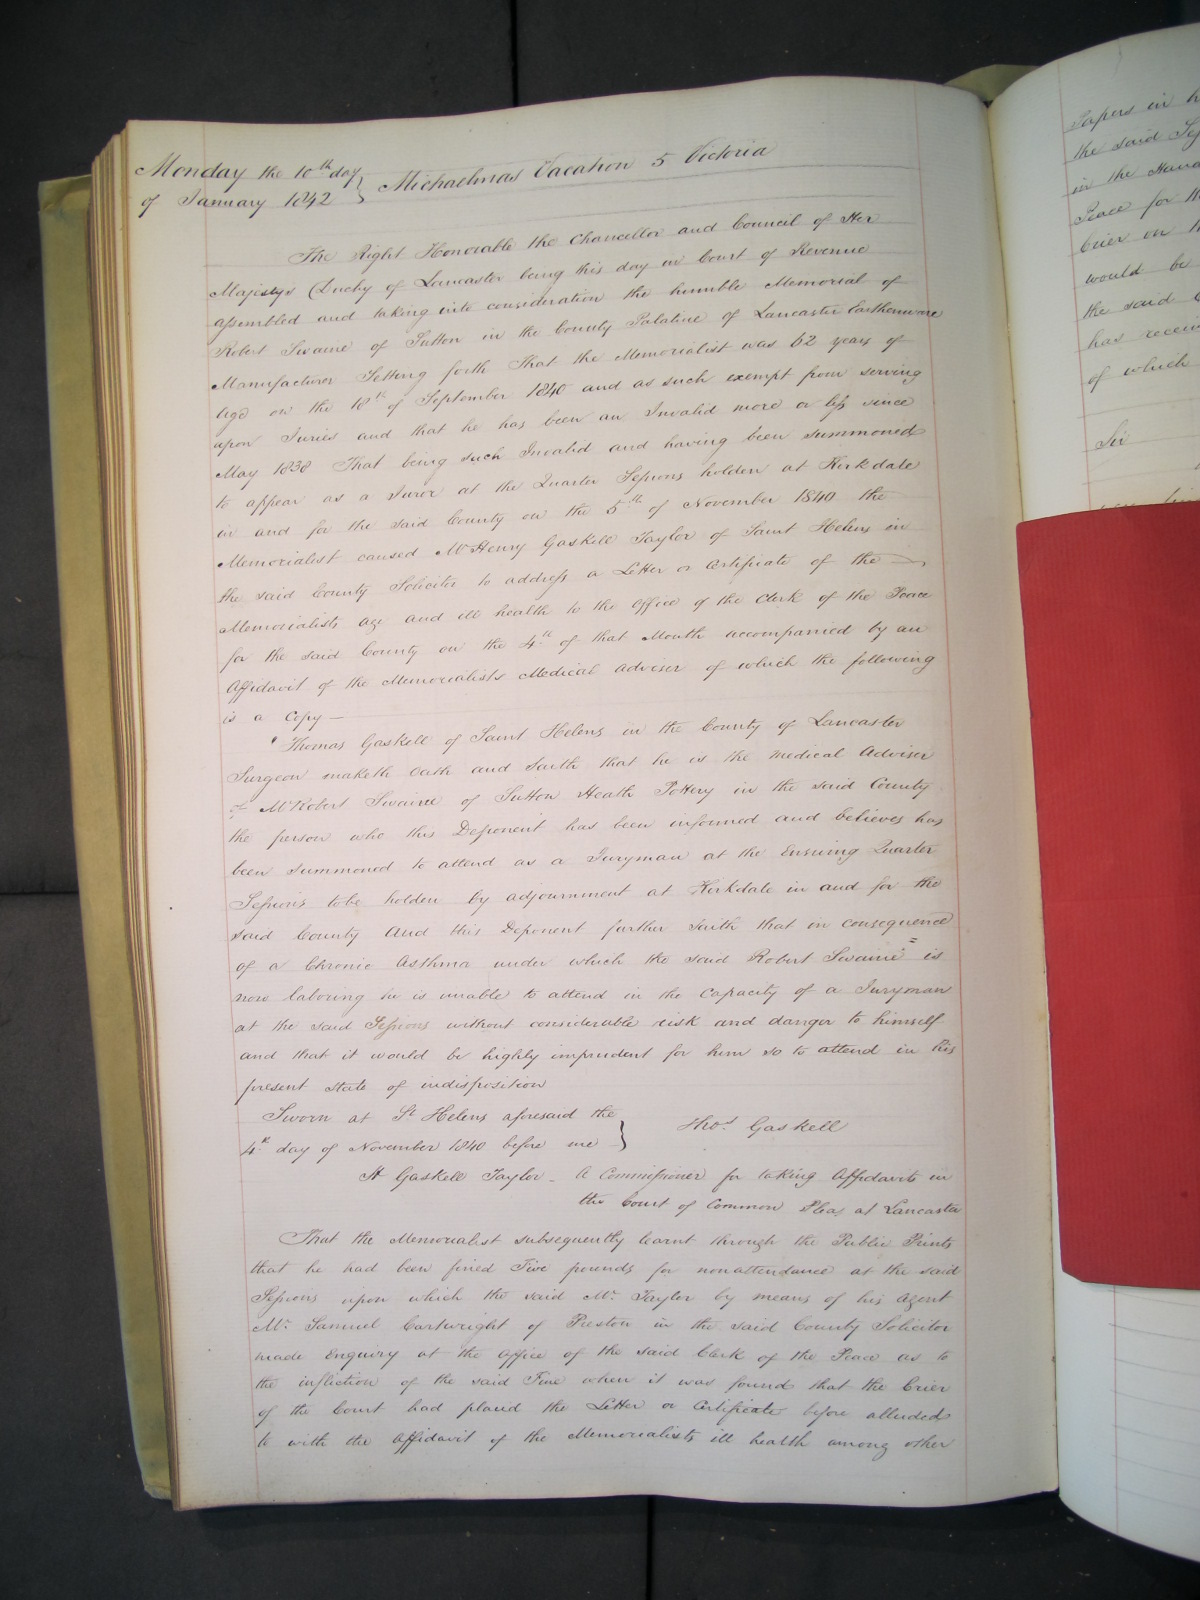 Monday the 10th day } Michaelmas Vacation 5 Victoria
of January 1842
The Right Honorable the Chancellor and Council of Her
Majestys Duchy of Lancaster being this day in Court of Revenue
assembled and taking into consideration the humble Memorial of
Robert Swaine of Sutton in the County Palatine of Lancaster Earthenware
Manufacturer Setting forth That the Memorialist was 62 years of
age on the 18th of September 1840 and as such exempt from serving
upon Juries and that he has been an Invalid more or less since
May 1838 That being such Invalid and having been summoned
to appear as a Juror at the Quarter Sessions holden at Kirkdale
in and for the said County on the 5th of November 1840 the
Memorialist caused Mr Henry Gaskell Taylor of Saint Helens in
the said County Solicitor to address a Letter or Certificate of the
Memorialists age and ill health to the Office of the Clerk of the Peace
for the said County on the 4th of that Month accompanied by an
Affidavit of the Memorialists Medical Adviser of which the following
is a Copy —
" Thomas Gaskell of Saint Helens in the County of Lancaster
Surgeon maketh Oath and Saith that he is the medical Adviser
of Mr Robert Swaine of Sutton Heath Pottery in the said County
the person who this Deponent has been informed and believes has
been summoned to attend as a Juryman at the Ensuing Quarter
Sessions to be holden by adjournment at Kirkdale in and for the
said County And this Deponent further Saith that in consequence
of a Chronic Asthma under which the said Robert Swaine is
now laboring he is unable to attend in the Capacity of a Juryman
at the said Sessions without considerable risk and danger to himself
and that it would be highly imprudent for him so to attend in his
present state of indisposition
Sworn at St Helens aforesaid the
4th day of November 1840 before me } Thos Gaskell
H Gaskell Taylor - A Commissioner for taking Affidavits in
the Court of Common Pleas at Lancaster
That the Memorialist subsequently learnt through the Public Prints
that he had been fined Five pounds for nonattendance at the said
Sessions upon which the said Mr Taylor by means of his Agent
Mr Samuel Cartwright of Preston in the said County Solicitor
made Enquiry at the Office of the said Clerk of the Peace as to
the infliction of the said Fine when it was found that the Crier
of the Court had placed the Letter or Certificate before alluded
to with the Affidavit of the Memorialists ill health among other
Papers in
the said
in the
Peace for
Crier on
would be
the said
has
of which
Sir